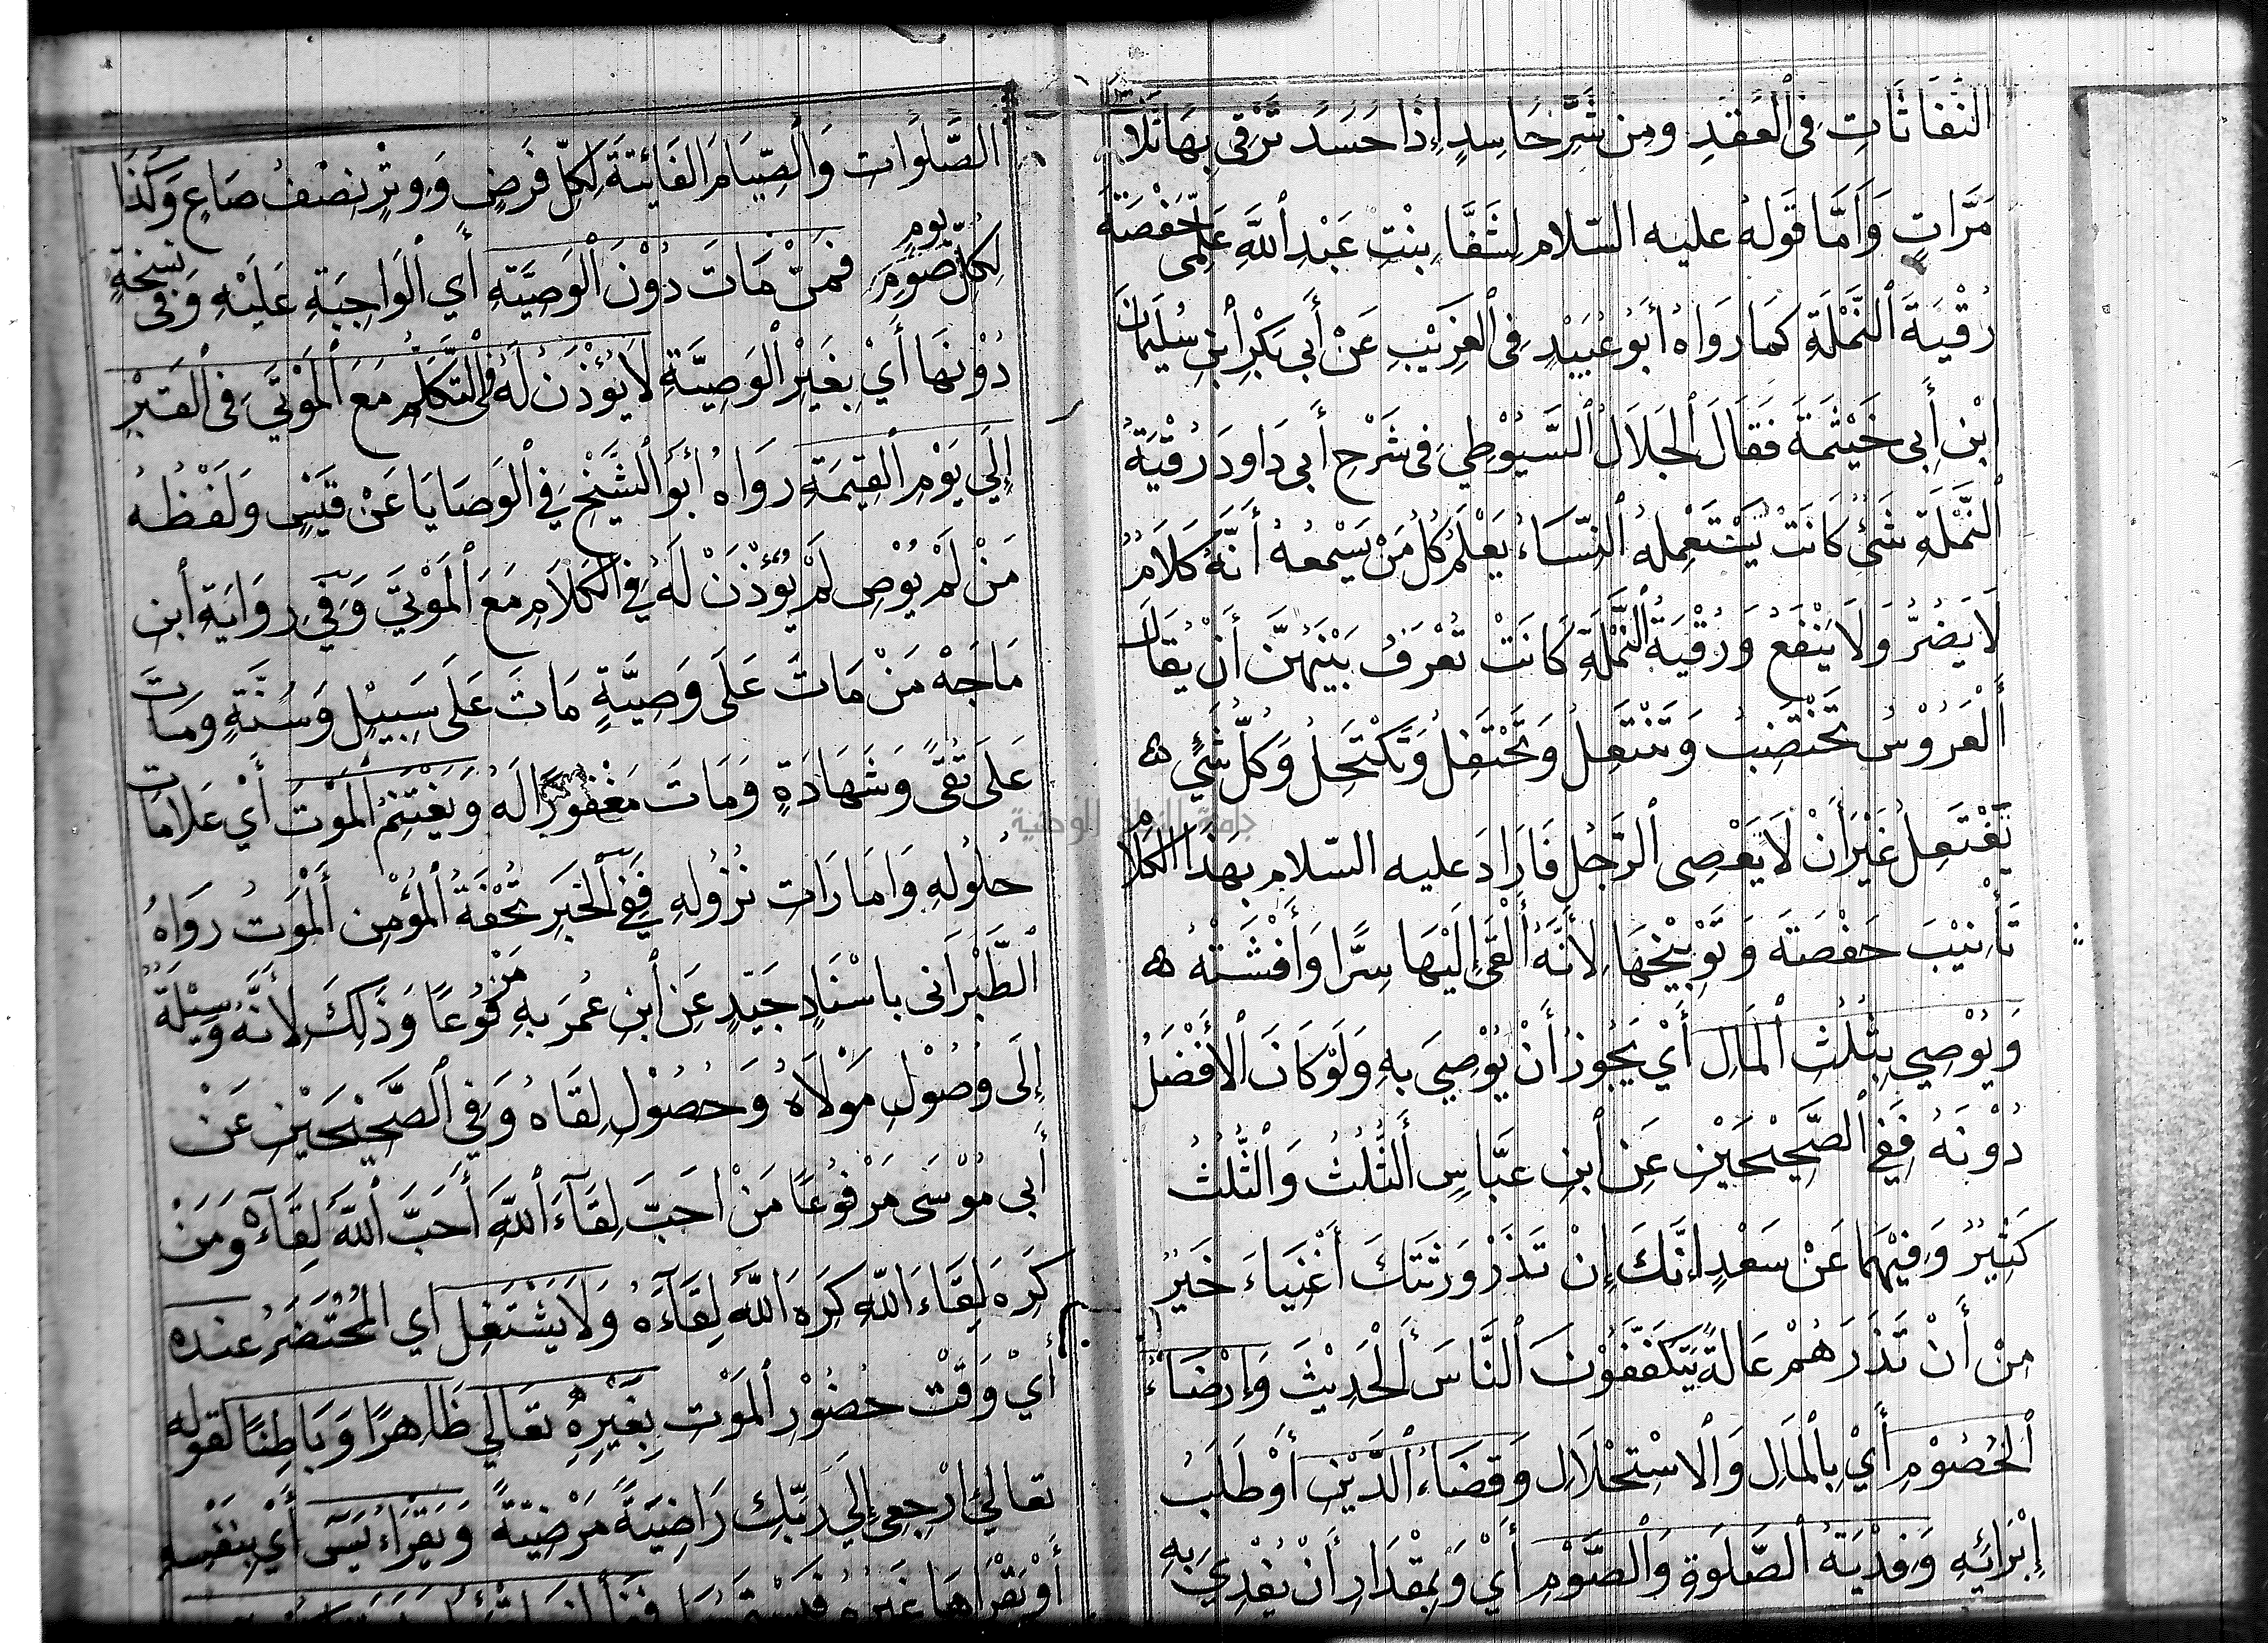 النَّفَّاثَاتِ فِى الْعُقَدِ وَمِن شَرِّ حَاسِدٍ إِذَا حَسَدَ تَرْقى بِهَا ثلاث
مَرَّاتٍ وَأَمَّا قَولهُ عليه السّلام لِشَفَّا بِنْتِ عَبْدِ اللهِ عَلِّمى حَفْصَةَ
رُقْيَةَ النَّمْلَةِ كمَا رَوَاهُ أبُو عُبَيْدٍ فِى الغَرِيْبِ عَنْ أَبى بَكْرِ ابْنِ سُلَيْمَان
ابْنِ أَبى خَيْثَمَةَ فَقَالَ الْجَلَالُ السَّيُوْطِي فِى شَرْحِ أَبى دَاودَ رُقْيَةُ
النَّمْلَةِ شَىْءٌ كَانَتْ يَسْتَعْمِلهُ النِّسَاءُ يَعْلَمُ كُلُ مَنْ يَسْمعُهُ أَنَّهُ كَلَامٌ
لَا يَضُرُّ وَلَا يَنْفَعُ وَرُقْيَةُ النَّمْلَةِ كَانَتْ تُعْرَفُ بَيْنَهُنَّ أَنْ يُقَالَ
أَلْعَرُوْسُ تَخْتَضِبُ وَتَنْتَعِلُ وَتَحْتَفِلُ وَتَكْتَحِلُ وَكلُّ شَيْءٍ
تَفْتَعِلُ غَيْرَ أَنْ لَا تَعْصِى الرَّجُل فَارَادَ عليه السّلام بِهَذَا الكَلَامِ
تَأْنِيْبَ حَفْصَةَ وَتَوْبِيْخَهَا لِأَنَّهُ أَلْقَى إِلَيْهَا سِرًّا وَأَفْشَتْهُ
وَيُوْصِي بِثُلُثِ الْمَالِ أَيْ يَجُوزُ أَنْ يُوْصِيَ بهِ وَلَوْ كَانَ الْأَفْضَلُ
دُوْنَهُ فَفِي الصَّحِيْحَيْنِ عَنِ ابْنِ عَبَّاسٍ أَلثُّلُثُ وَالثُّلُثُ
كَثِيْرٌ وَفِيْهِمَا عَنْ سَعْدٍ إِنَّكَ إِنْ تَذَرْ وَرَثَتَكَ أَغْنِيَاءَ خَيْرٌ
مِنْ أَنْ تَذَرَهُمْ عَالَةً يَتَكَفَّفُوْنَ النَّاسَ أَلْحَدِيْثَ وَإِرْضَاءُ
الْخُصُوْمِ أَيْ بِالْمَالِ وَالْاسْتِحْلَالِ وَقَضَاءُ الدَّيْنِ أَوْ طَلَبُ
إِبْرَائِهِ وَفِدْيَةُ الصَّلَوةِ وَالصَّوْمِ أَيْ وَبِمِقْدَارِ أَنْ يُفْدِيَ بِهِ
الصَّلَوَات وَالصِّيَامَ الفَائِتَةَ لِكُلِّ فَرَضٍ وَوِتْرٍ نِصْفُ صَاعٍ وَكَذَا
لِكُلِّ صَوْمِ يومٍ فمَنْ مَاتَ دُوْنَ الْوَصِيَّةِ أَي الْوَاجِبَةِ عَلَيْهِ وَفى نسخةٍ
دُوْنِهَا أَيْ بِغَيْرِ الْوَصِيَّةِ لَا يُؤْذَنُ لَهُ فى التَّكَلُّمِ مَعَ الْمَوْتَى فِى الْقَبْرِ
إِلَى يَوْمِ الْقِيَمَةِ رَوَاهُ أَبُو الشَّيْخِ فِي الْوَصَايَا عَنْ قَيْسٍ وَلَفْظُهُ
مَنْ لَمْ يُوْصِ لَمْ يُؤْذَنْ لَهُ فِي الكَلَامِ مَعَ الْمَوْتَى وَفِي رِوَايَةِ ابن
مَاجَهْ مَنْ مَاتَ عَلَى وَصِيَّةٍ مَاتَ عَلَى سَبِيْلٍ وَسُنَّةٍ ومَاتَ
عَلَى تُقًى وَشَهَادَةٍ وَمَاتَ مَغْفُورًا لَهُ وَيَغْتَنِمُ الْمَوْتَ أَيْ عَلَامَات
حُلُولهِ وَامَارَاتِ نُزُولِهِ فَفِي الْخَبَرِ تُحْفَةُ الْمُؤْمِنِ أَلْمَوتُ رَوَاهُ
الطَّبْرَانى باسْنَادٍ جَيّدٍ عَنِ ابْنِ عُمَرَ بهِ مَرْفُوْعًا وَذَلِكَ لِأَنَّهُ وَسِيْلَةٌ
إِلَى وُصُوْلِ مَوْلَاهُ وَحُصُوْلِ لِقَاهُ وَفِي الصَّحِيْحَيْنِ عَنْ
أَبى مُوْسَى مَرْفُوْعًا مَنْ احَبَّ لِقَآءَ اللهِ أَحَبَّ اللهُ لِقَآءَهُ وَمَنْ
كَرِهَ لِقَاءَ اللهِ كَرِهَ اللهُ لِقَآءَهُ وَلَا يَشْتَغِل أي الْمُحْتَضَرُ عنده
أَيْ وَقْتَ حُضُوْرِ الْمَوْتِ بِغَيْرِهِ تعَالي ظَاهِرًا وَبَاطِنًا لقوله
تعالى ارْجِعِى إِلَى رَبِّكِ رَاضِيَةً مَرْضِيَّةً وَيَقْرَاءُ يٰسٓ أَيْ بِنَفْسِهِ
أَوْ يَقْرَاهَا غَيْرهُ
جامعة النجاح الوطنية